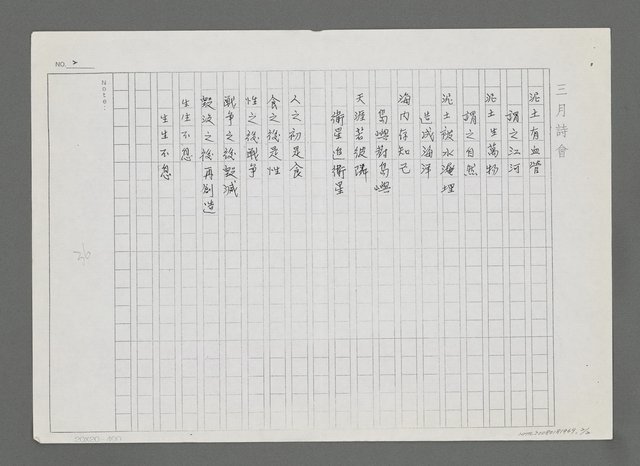 三月詩會
泥土有血管
謂之江河
泥土生萬物
謂之自然
泥土被水淹埋
造成海洋
海內存知己
島嶼對島嶼
天涯若彼隣
衛星追衛星
人之初是食
食之後是性
性之後戰爭
戰爭之後毀滅
毀滅之後再創造
生生不息
生生不息
NO. 2
Note:
20X20=400